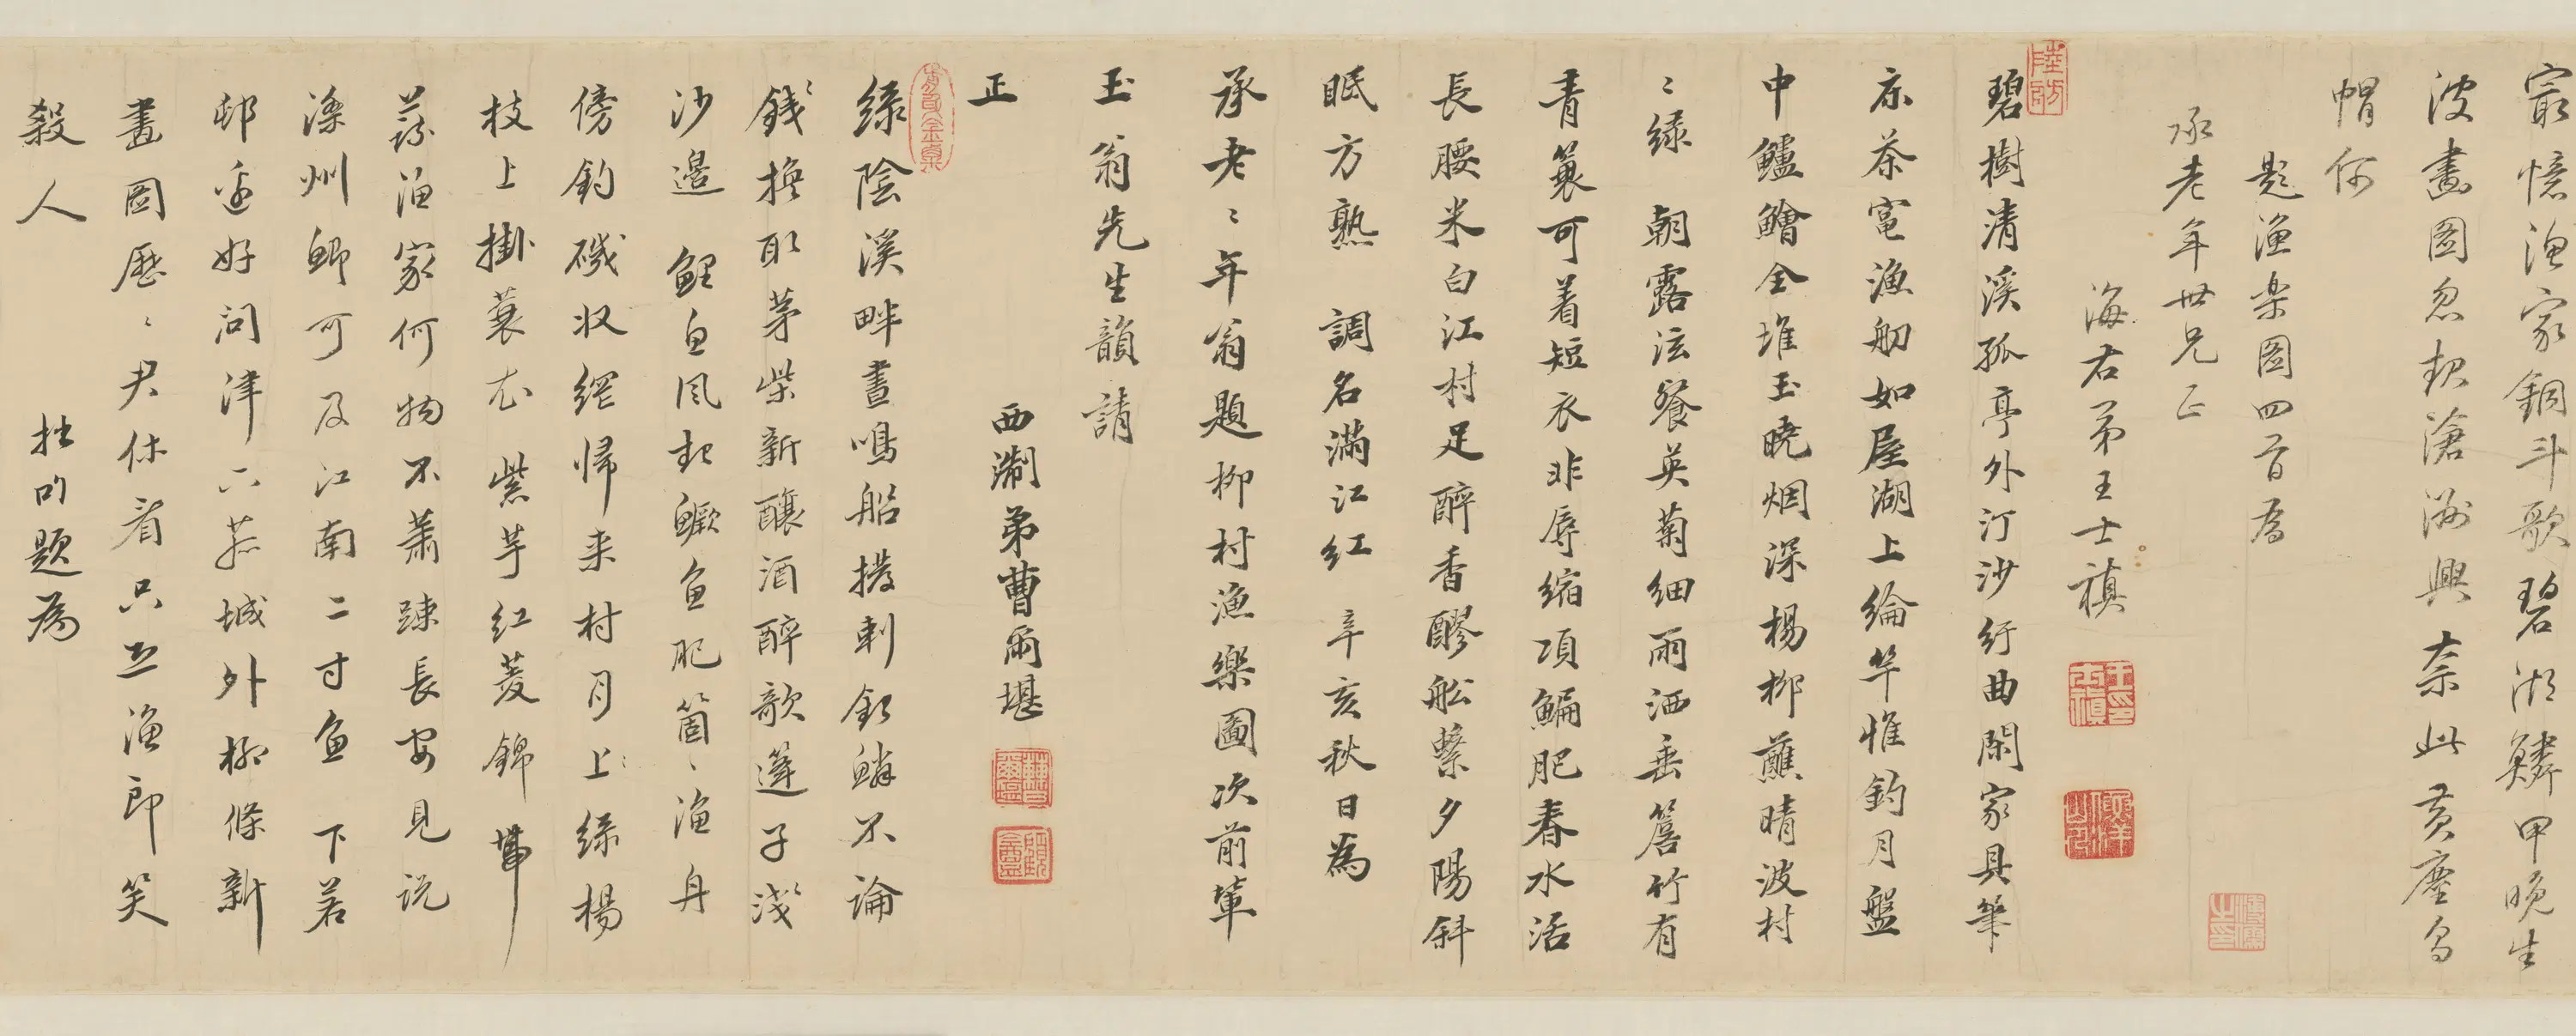 最憶漁家銅斗歌碧湖鱗甲晚生
波畫圖忽起滄洲興奈此黃塵烏
帽何
題漁樂圖四首為
承老年世兄正
海右弟王士禛
碧樹清溪孤亭外汀沙紆曲閑家具筆
床茶竈漁舠如屋湖上綸竿惟釣月盤
中鱸鱠全堆玉曉烟深楊柳蘸晴波村
〻綠 朝露泫餐英菊細雨洒垂簷竹有
青蓑可着短衣非辱縮項鯿肥春水活
長腰米白江村足醉香醪舩繫夕陽斜
眠方熟 調名滿江紅 辛亥秋日為
承老〻年翁題柳村漁樂圖次前輩
玉翁先生韻請
正
西瀨弟曹爾堪
綠陰溪畔晝鳴船撥剌銀鱗不論
錢換取茅柴新釀酒醉歌蓮子淺〻
沙邊 鯉魚風起鱖魚肥箇〻漁舟
傍釣磯收網歸来村月上綠楊
枝上掛蓑衣 紫芋紅菱錦帶
蓴漁家何物不蕭踈長安見說
滦州鯽可及江南二寸魚 下若
邨邊好問津六燕城外柳條新
畫圖歷〻君休看只恐漁郎笑
殺人 拙句題為